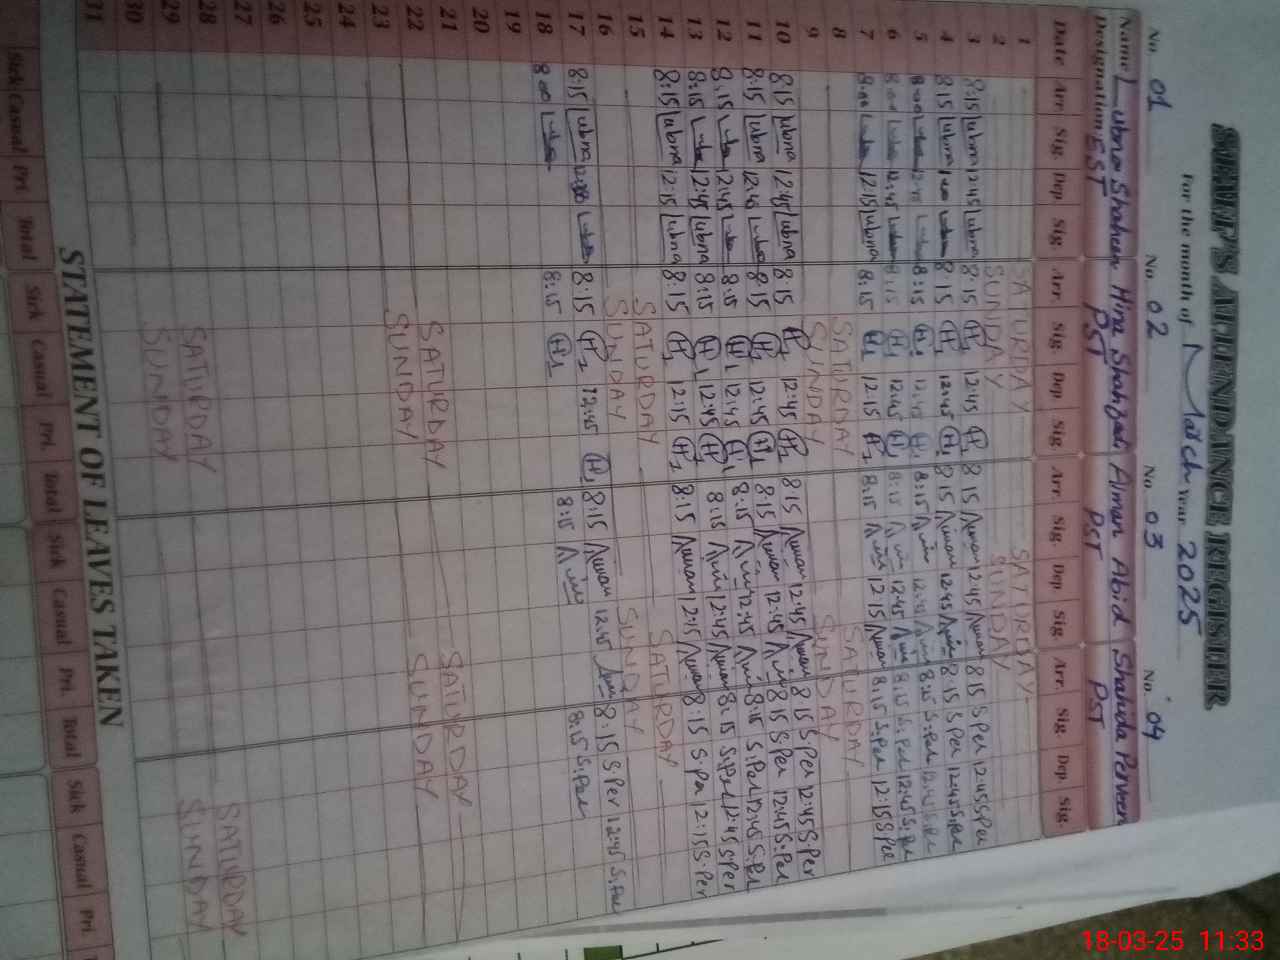 STAFF'S ATTENDANCE REGISTER
For the month of March Year 2025
No. 01 No. 02 No. 03 No. 04
Name Lubna Shaheen Hina Shahzadi Aiman Abid Shahida Perveen
Designation EST PST PST PST
Date Arr Sig. Dep Sig. Arr. Sig. Dep Sig. Arr. Sig. Dep Sig. Arr. Sig. Dep. Sig.
1 SATURDAY SATURDAY
2 SUNDAY SUNDAY
3 8:15 Lubna 12:45 Lubna 8:15 H 12:45 H 8:15 Aiman 12:45 Aiman 8:15 S.Per 12:45 S.Per
4 8:15 Lubna 8:15 H 12:45 H 8:15 Aiman 12:45 8:15 S.Per 12:45 S.Per
5 8:00 12:45 8:15 H 12:45 H 8:15 12:45 8:15 S.Per 12:45 S.Per
6 8:00 12:45 8:15 H 12:45 H 8:15 12:45 8:15 S.Per 12:45 S.Per
7 8:00 12:15 Lubna 8:15 H 12:15 H 8:15 12:15 Aiman 8:15 S.Per 12:15 S.Per
8 SATURDAY SATURDAY
9 SUNDAY SUNDAY
10 8:15 Lubna 12:45 Lubna 8:15 H 12:45 H 8:15 Aiman 12:45 Aiman 8:15 S.Per 12:45 S.Per
11 8:15 Lubna 12:45 8:15 H 12:45 H 8:15 Aiman 12:45 8:15 S.Per 12:45 S.Per
12 8:15 12:45 8:15 H 12:45 H 8:15 12:45 8:15 S.Per 12:45 S.Per
13 8:15 12:45 Lubna 8:15 H 12:45 H 8:15 12:45 8:15 S.Per 12:45 S.Per
14 8:15 Lubna 12:15 Lubna 8:15 H 12:15 H 8:15 Aiman 12:15 Aiman 8:15 S.Per 12:15 S.Per
15 SATURDAY SATURDAY
16 SUNDAY SUNDAY
17 8:15 Lubna 8:15 H 12:45 H 8:15 Aiman 12:45 8:15 S.Per 12:45 S.Per
18 8:00 8:15 H 8:15 8:15 S.Per
19
20
21
22 SATURDAY SATURDAY
23 SUNDAY SUNDAY
24
25
26
27
28
29 SATURDAY SATURDAY
30 SUNDAY SUNDAY
31
STATEMENT OF LEAVES TAKEN
Sick Casual Pri. Total Sick Casual Pri. Total Sick Casual Pri. Total Sick Casual Pri.
18-03-25 11:33